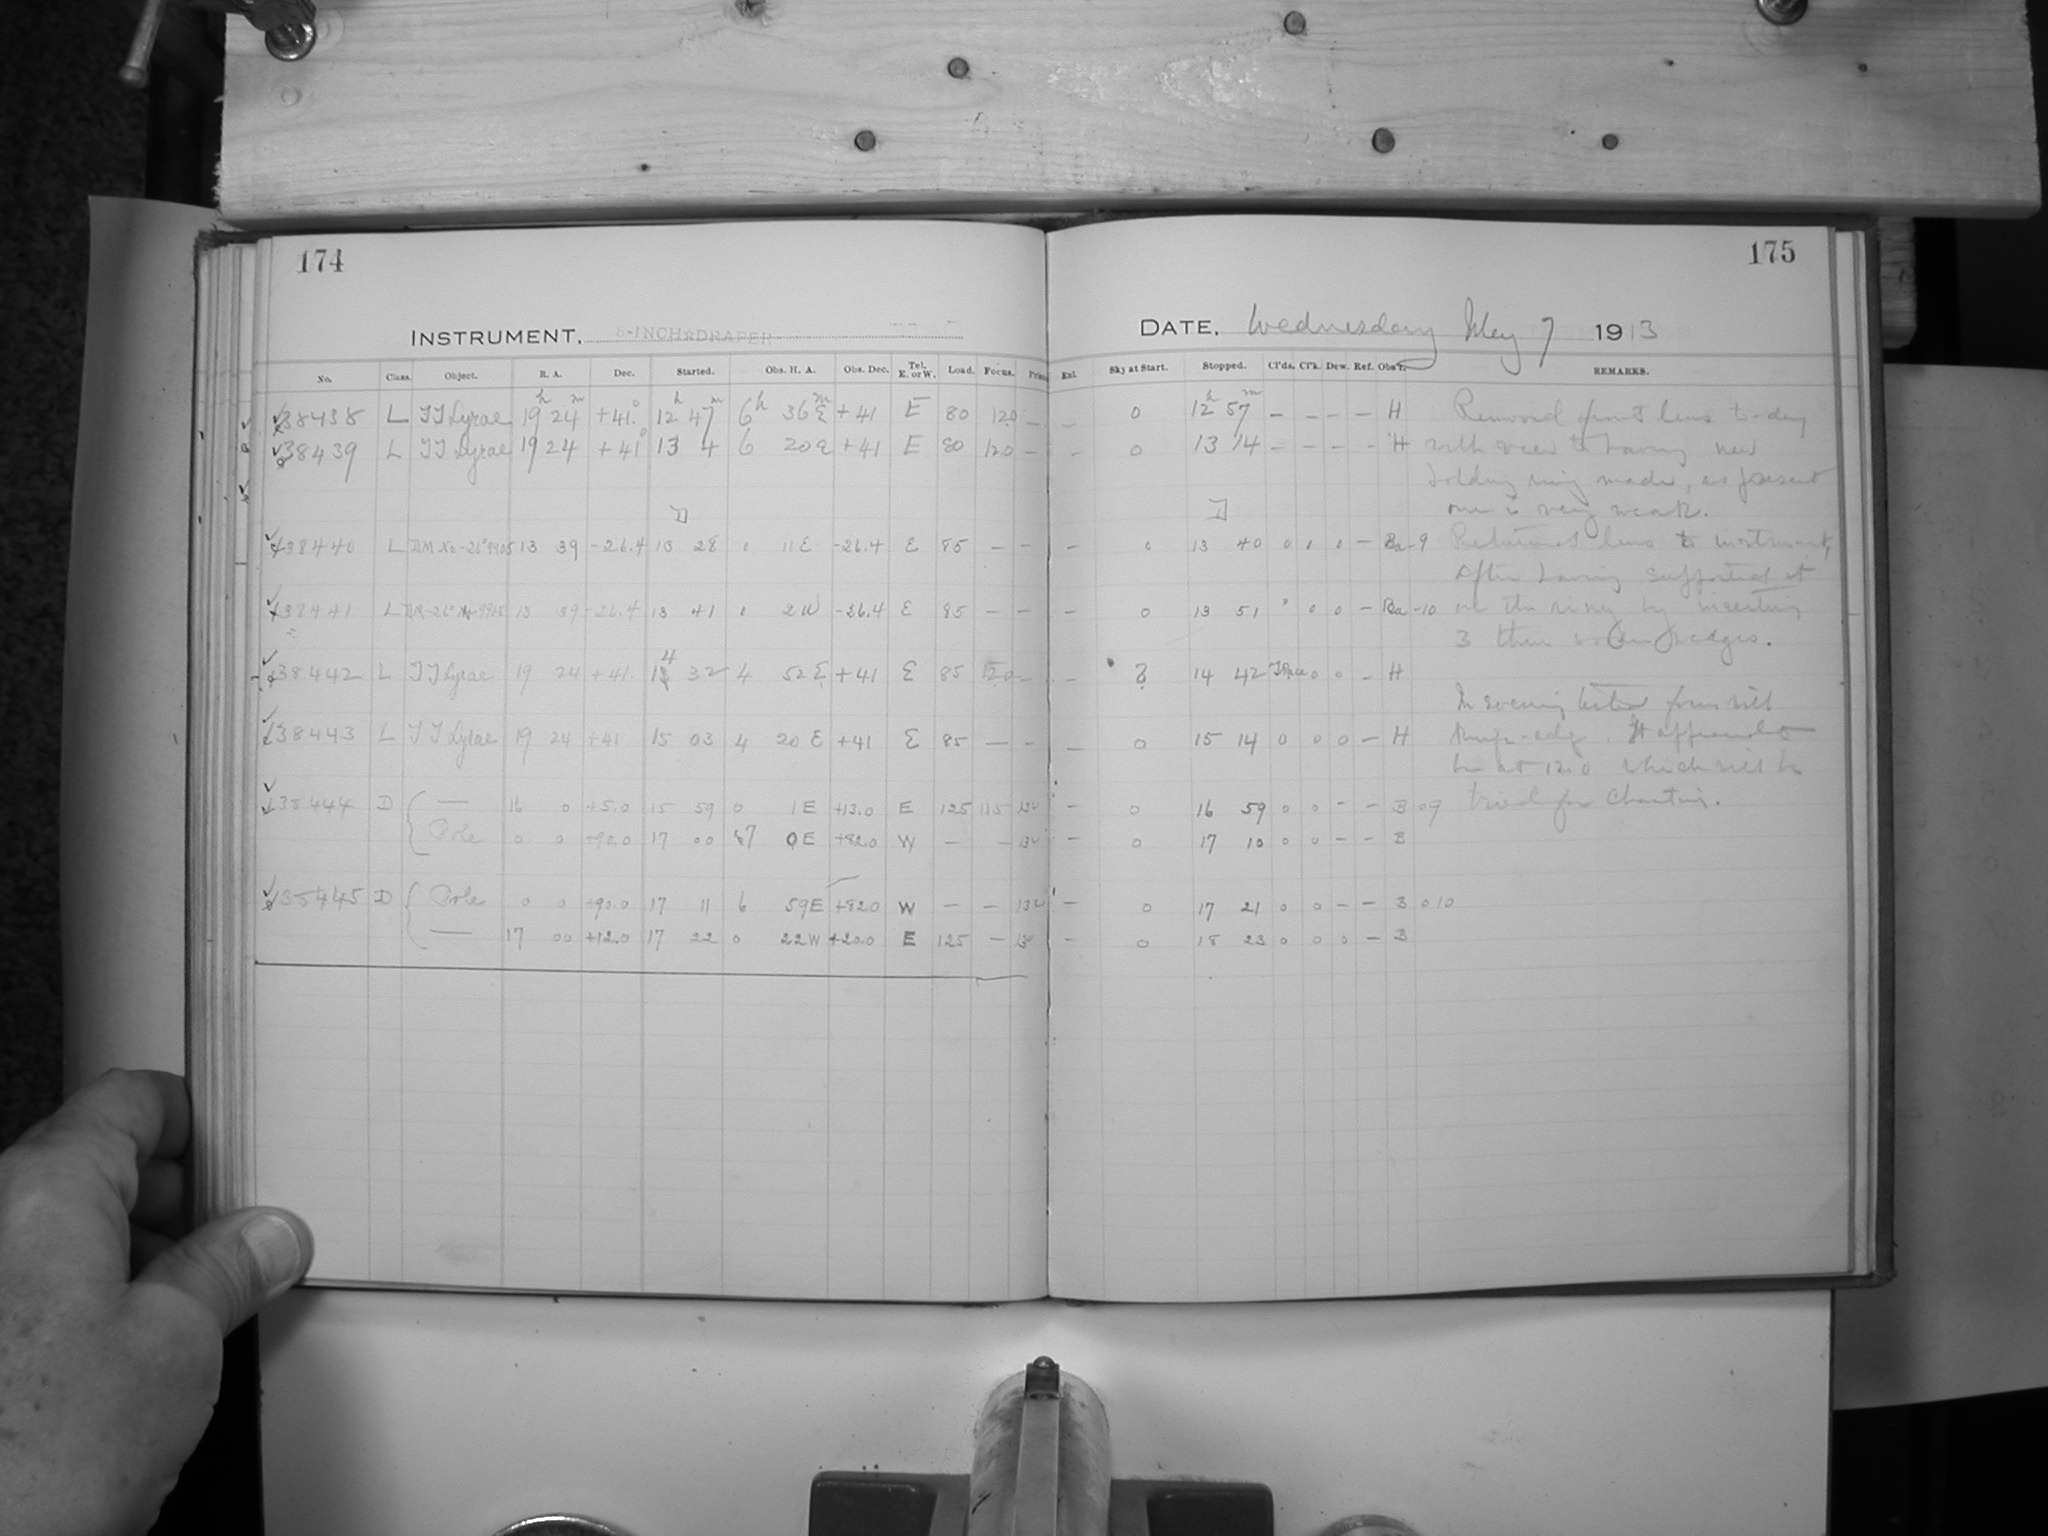 174
175
INSTRUMENT. 8-INCH DRAPER
DATE. Wednesday May 7 1913
No. Class. Object. R. A. Dec. Started. Obs. H. A. Obs. Dec. Tel. E. or W. Load. Focus. Prism Enl. Sky at Start. Stopped. Cl'ds. Cl'k. Dew. Ref. Obs'r. REMARKS.
38438 L TT Lyrae 19h 24m +41° 12h 47m 6h 36m E +41 E 80 12.0 – – 0 12h 57m – – – – H Removed front lens to-day
38439 L TT Lyrae 19 24 +41° 13 4 6 20 E +41 E 80 12.0 – – 0 13 14 – – – – H with view to having new
holding ring made, as present
one is very weak.
38440 L 13 39 -26.4 13 28 0 11 E -26.4 E 85 – – – 0 13 40 0 0 0 – Ba-9 Returned lens to instrument,
After having supported it
38441 L 13 39 -26.4 13 41 0 2 W -26.4 E 85 – – – 0 13 51 0 0 – Ba-10 on the ring by inserting
3 thin wooden wedges.
38442 L TT Lyrae 19 24 +41. 14 32 4 52 E +41 E 85 12.0 – – 14 42 0 0 – H
In evening tested focus with
38443 L TT Lyrae 19 24 +41 15 03 4 20 E +41 E 85 – – – 0 15 14 0 0 0 – H knife-edge. It appeared to
be at 12.0 which will be
38444 D — 16 0 +5.0 15 59 0 1 E +13.0 E 125 – 0 16 59 0 0 – – B 09 tried for Charting.
Pole 0 0 +90.0 17 00 7 0 E +82.0 W – – – 0 17 10 0 0 – – B
38445 D Pole 0 0 +90.0 17 11 6 59 E +82.0 W – – – 0 17 21 0 0 – – B 010
— 17 00 +12.0 17 22 0 22 W +20.0 E 125 – – 0 18 23 0 0 0 – B